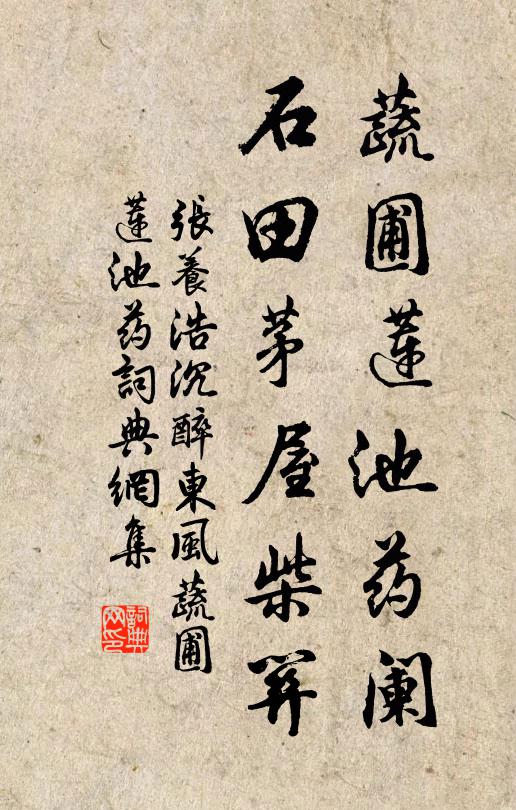 蔬圃蓮池药阑
石田茅屋柴關
張養浩沉醉東風蔬圃
蓮池药詞典網集
詞典
网印